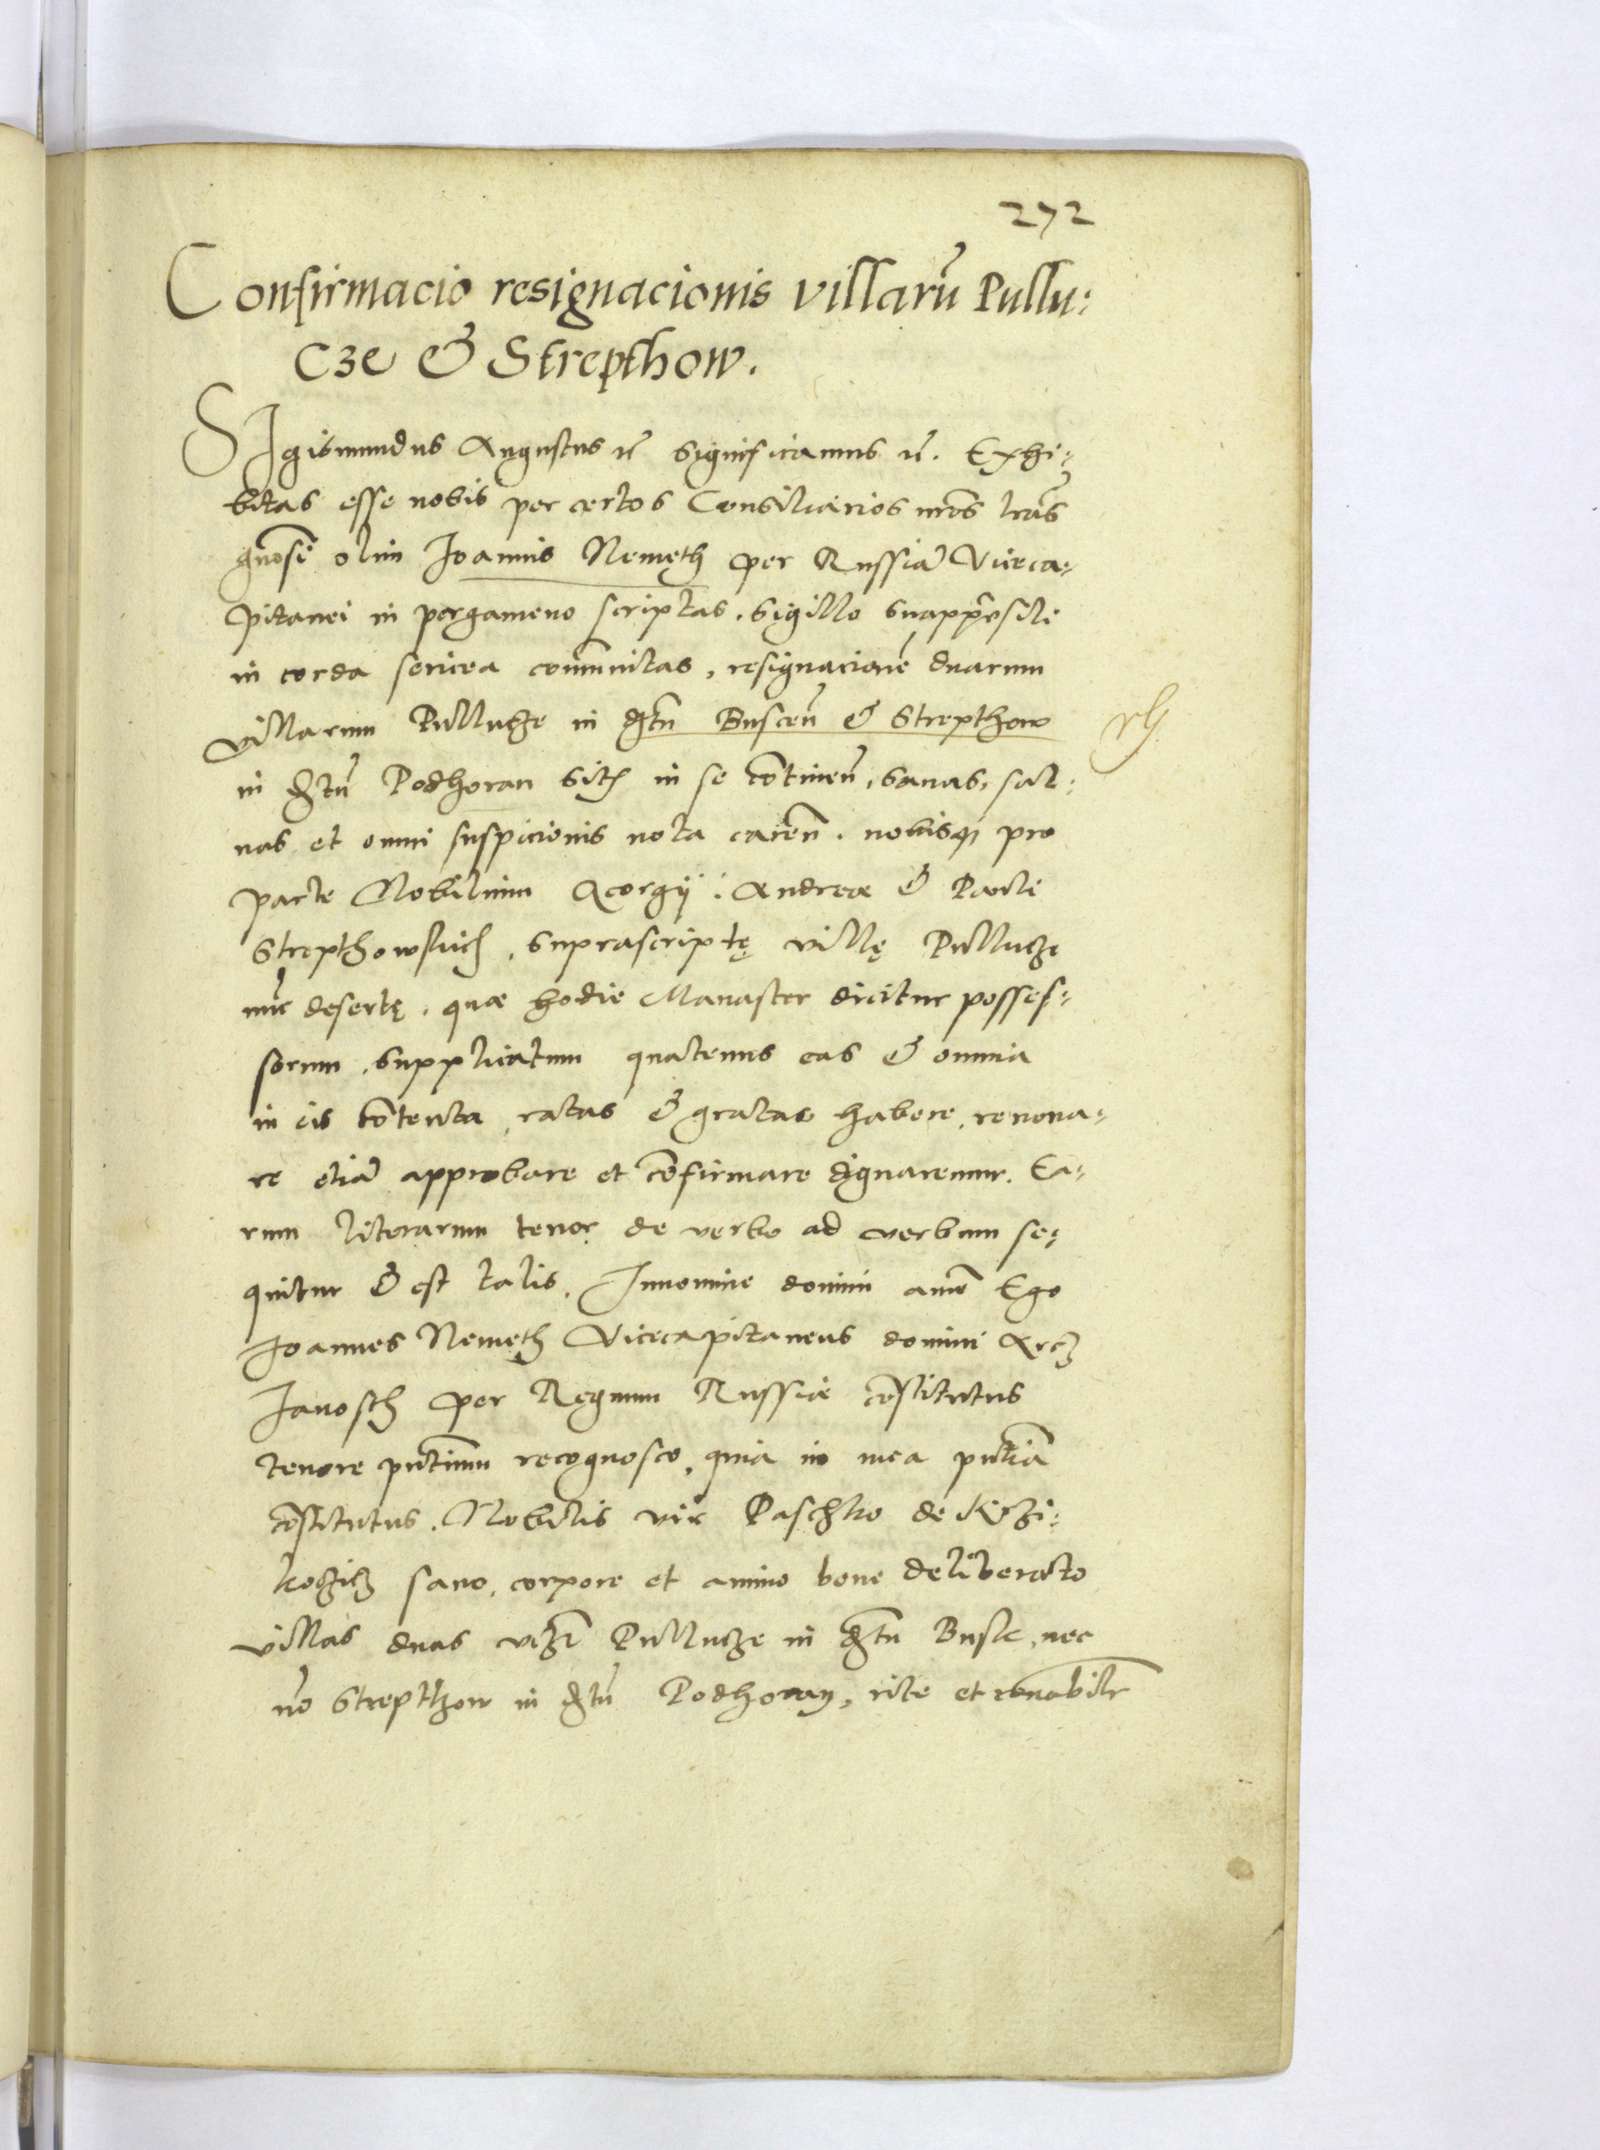 272
Confirmacio resignacionis villarũ Pullu:
cze & Strepthow.
SIgismundus Augustus rc̃ significamus rc̃. Exhi:
bitas esse nobis per certos Consiliarios nr̃os lrãs
gñosi olim Joannis Nemęth per Russiã Viceca:
pitanei in pergameno scriptas, sigillo
in corda sericea com̃unitas, resignacionẽ duarum
villarum Pullucze in dr̃tu Buscen̄ & Strepthow
in dr̃tu Podhoran sit in se cõtinen̄, sanas, sal:
uas et omni suspicionis nota caren̄. nobisq pro
parte Nobilium Georgÿ: Andreæ & Pauli
suprascriptę villę Pullucze
nũc desertę, quæ hodie Manaster dicitur posses:
sorum, supplicatum quatenus eas & omnia
in eis cõtenta, ratas & gratas habere, renoua:
re etiã approbare et cõfirmare dignaremur. Ea:
rum literarum tenor de verbo ad verbum se:
quitur & est talis. Innomine domini amẽ Ego
Joannes Nemęth Vicecapitaneus domini
Janosch per Regnum Russiæ cõstitutus
tenore pñtium recognosco, quia in mea pñtiã
cõstitutus. Nobilis vir Paschko de
sano, corpore et animo bene deliberato
villas duas vcz̃ Pullucze in dr̃tu Busk, nec
nõ Strepthow in dr̃tu Podhoray, rite et rõnabilr